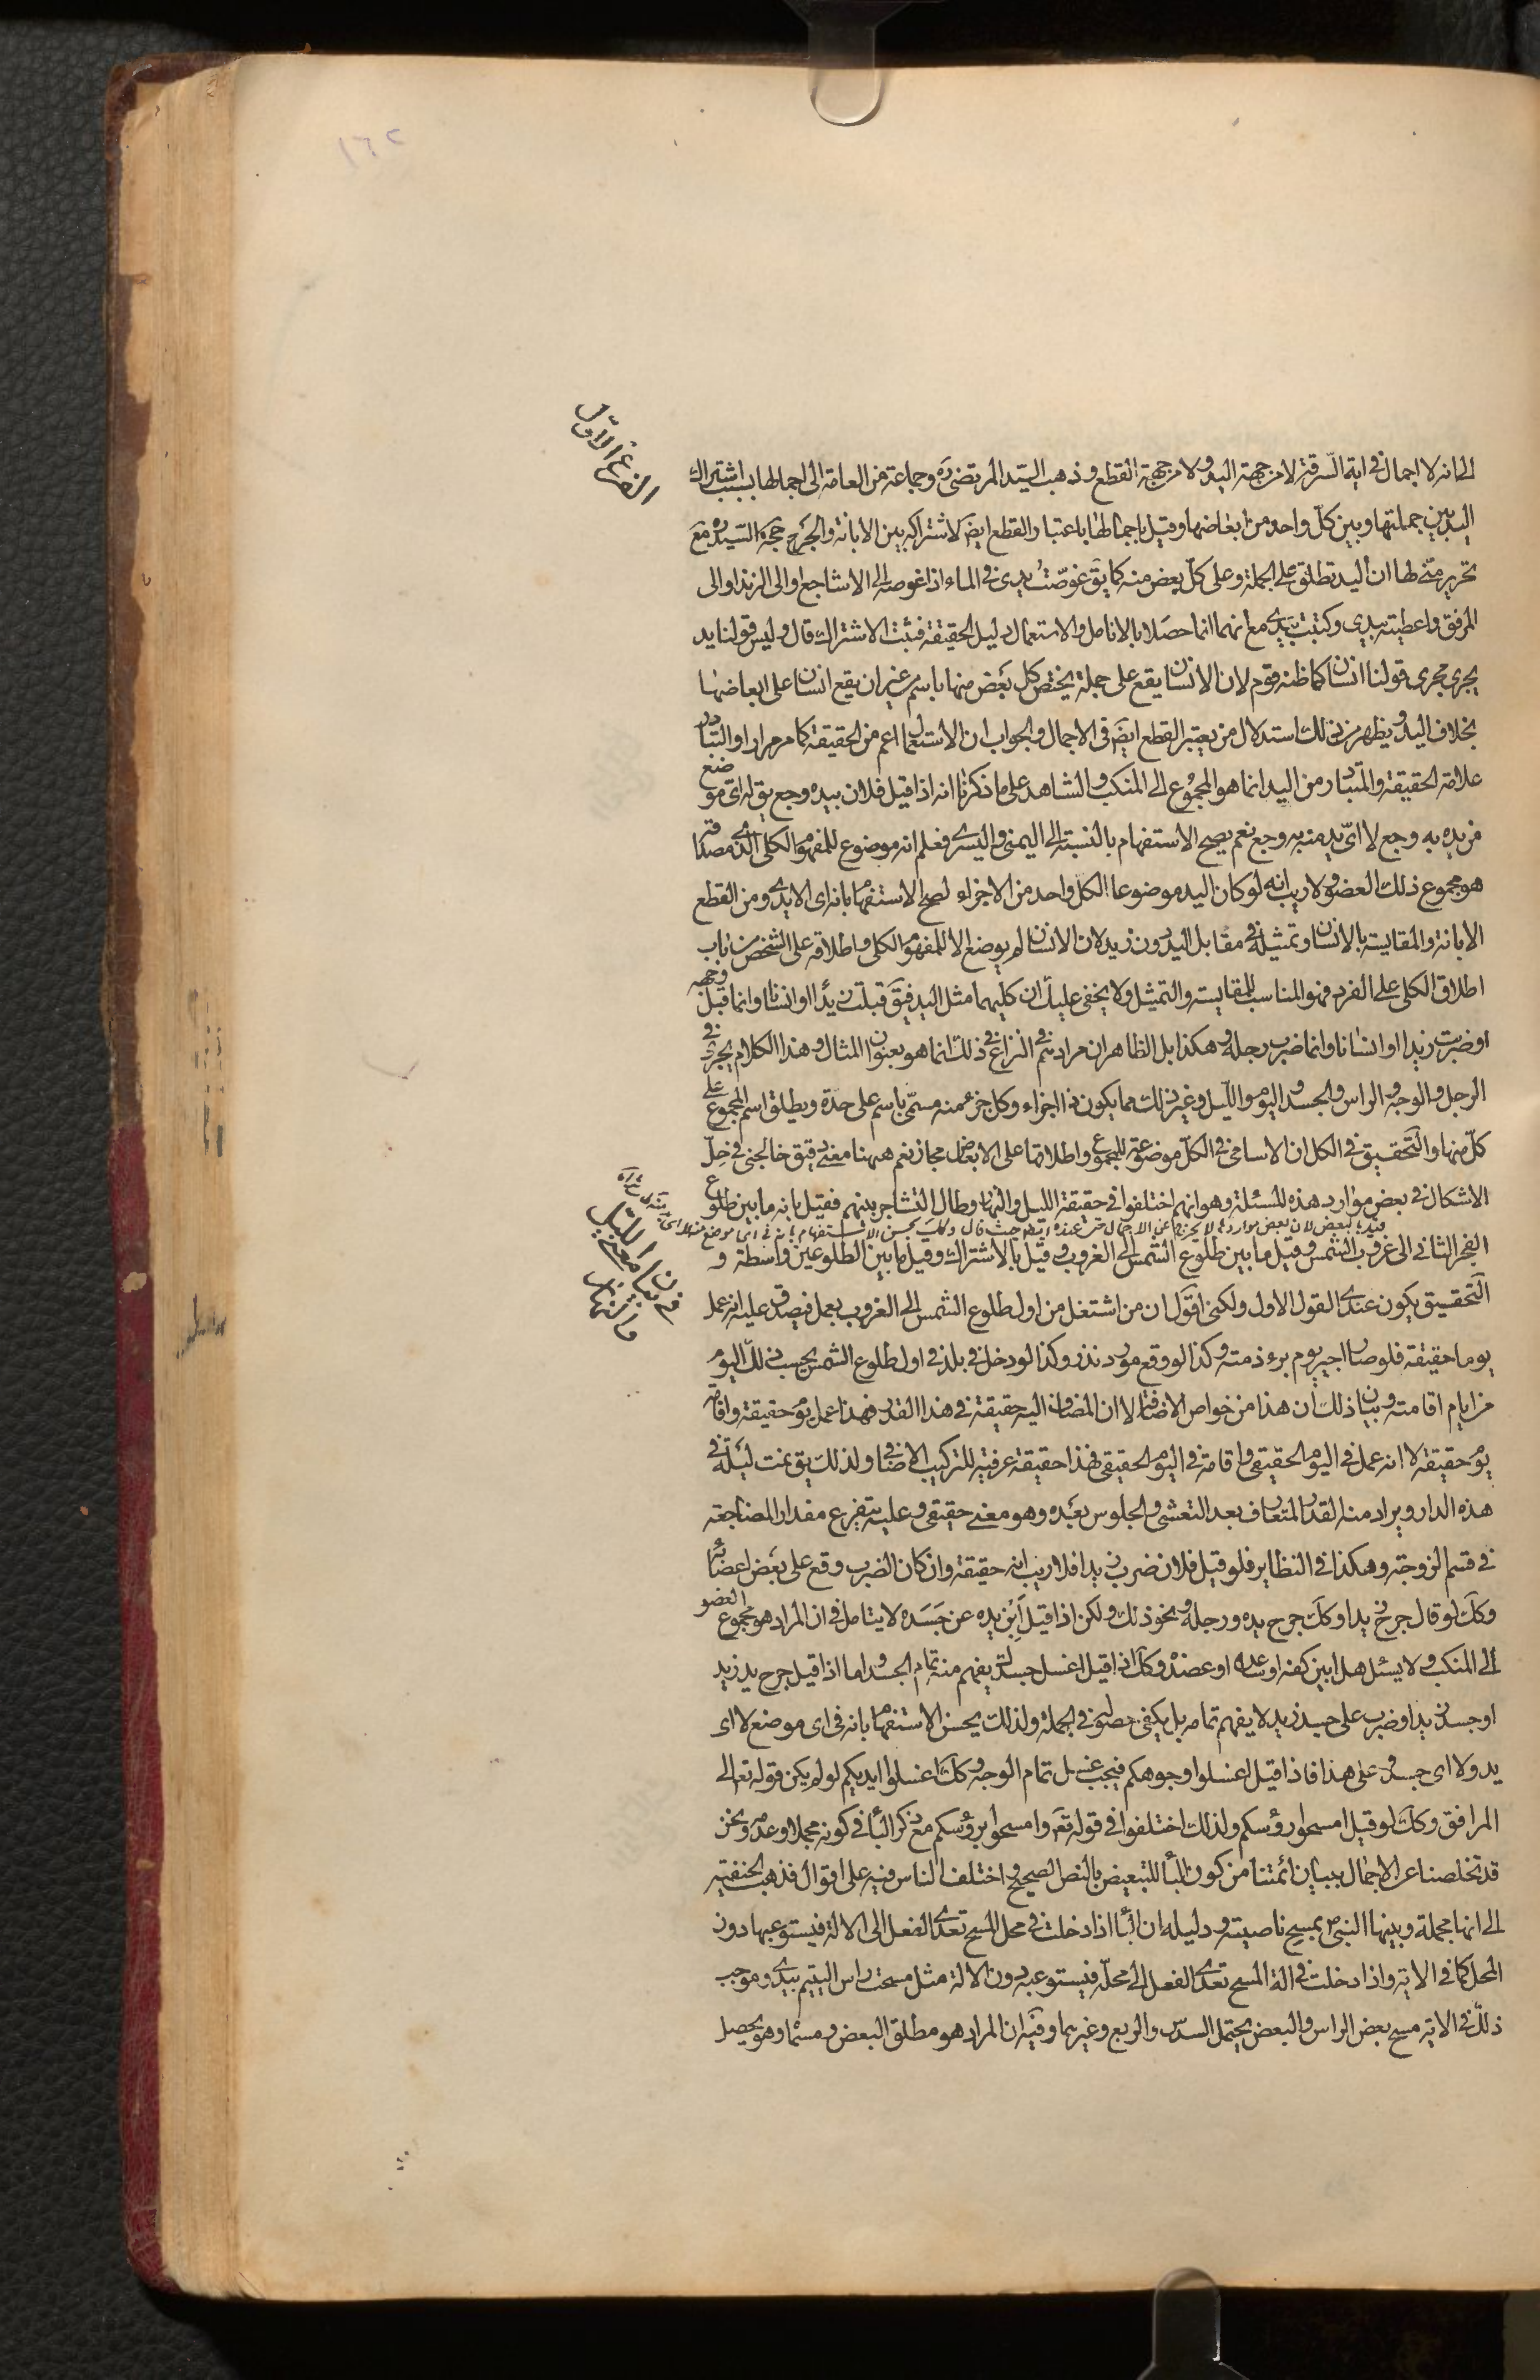 الى انه لا اجمال فى اية السرقة لا من جهة اليد ولا من جهة القطع وذهب السيد المرتضى ره وجماعة من العامة الى اجمالها بسبب اشتراك
اليد بين جملتها وبين كل واحد من ابعاضها وقيل باجمالها باعتبار القطع ايضَ لاشتراكه بين الابانة والجرح حجة السيد ره مع
تحرير منى لها ان اليد تطلق على الجملة وعلى كل بعض منه كما يق غوصت يدى فى الماء اذا غوصه الى الاشاجع او الى الزند او الى
المرفق واعطيته بيدى وكتبت بيدى مع انهما انما حصلا بالانامل والاستعمال دليل الحقيقة فثبت الاشتراك قال وليس قولنا يد
يجرى مجرى قولنا انسان كما ظنه قوم لان الانسان يقع على جملة يختص كل بعض منها باسم من غير ان يقع انسان على ابعاضها
بخلاف اليد ويظهر من ذلك استدلال من يعتبر القطع ايضَ فى الاجمال والجواب ان الاستعمال اعم من الحقيقة كما مر مرارا والتبادر
علامة الحقيقة والمتبادر من اليد انما هو المجموع الى المنكب والشاهد على ما ذكرنا انه اذا قيل فلان بيده وجع يق له اى موضع
من يده به وجع لا اىّ يد منه به وجع نعم يصح الاستفهام بالنسبة الى اليمنى واليسرى فعلم انه موضوع للمفهوم الكلى الذى مصداقه
هو مجموع ذلك العضو ولا ريب انه لو كان اليد موضوعا لكل واحد من الاجزاء لصح الاستفهام بانه اى الايدى ومن القطع
الابانة والمقايسة بالانسان وتمثيله فى مقابل اليد دون زيد لان الانسان لم يوضع الا للمفهوم الكلى واطلاقه على الشخص من باب
اطلاق الكلى على الفرد فهو المناسب للمقايسة والتمثيل ولا يخفى عليك ان كليهما مثل اليد فيقَ قبلت زيدا او انسانا وانما قبل وجهه
او ضربت زيدا او انسانا وانما ضرب رجله وهكذا بل الظاهر ان مرادهم فى النزاع فى ذلك انما هو بعنوان المثال وهذا الكلام يجرى فى
الرجل والوجه والراس والجسد واليوم والليل وغير ذلك مما يكون ذا اجزاء وكل جزء منه مسمى باسم على حدة ويطلق اسم المجموع على
كل منها والتحقيق فى الكل ان الاسامى فى الكل موضوعة للمجموع واطلاقها على الابعاض مجاز نعم ههنا معنى دقيق خالجنى فى حل
الاشكال فى بعض موارد هذه المسئلة وهو انهم اختلفوا فى حقيقة الليل والنهار وطال التشاجر بينهم فقيل بانه ما بين طلوع
الفجر الثانى الى غروب الشمس وقيل ما بين طلوع الشمس الى الغروب وقيل بالاشتراك وقيل ما بين الطلوعين واسطة و
التحقيق يكون عندى القول الاول ولكنى اقول ان من اشتغل من اول طلوع الشمس الى الغروب بعمل فيصدق عليه انه عمل
يوما حقيقة فلو صار اجير يوم برء ذمته وكذا لو وقع مورد نذر وكذا لو دخل فى بلد فى اول طلوع الشمس يحسب ذلك اليوم
من ايام اقامته وبيان ذلك ان هذا من خواص الاضافة لا ان المضاف اليه حقيقة فى هذا القدر فهذا عمل يوم حقيقة واقامة
يوم حقيقة لا انه عمل فى اليوم الحقيقى واقامة فى اليوم الحقيقى فهذا حقيقة عرفية للتركيب الاضافى ولذلك يق نمت ليلة فى
هذه الدار ويراد منه القدر المتعارف بعد التعشى والجلوس بعده وهو معنى حقيقى وعليه يتفرع مقدار المضاجعة
فى قسم الزوجة وهكذا فى النظاير فلو قيل فلان ضرب زيدا فلا ريب انه حقيقة وان كان الضرب وقع على بعض اعضائه
وكك لو قال جرح زيدا وكك جرح يده ورجله ونحو ذلك ولكن اذا قيل ابن يده عن جسده لا يتامل فى ان المراد هو مجموع العضو
الى المنكب ولا يسئل هل ابين كفه او ساعده او عضده وكك اذا قيل اغسل جسدك يفهم منه تمام الجسد واما اذا قيل جرح يد زيد
او جسد زيد او ضرب على جسد زيد لا يفهم تمامه بل يكفى حصوله فى الجملة ولذلك يحسن الاستفهام بانه فى اى موضع لا اى
يد ولا اى جسد وعلى هذا فاذا قيل اغسلوا وجوهكم فيجب غسل تمام الوجه وكك اغسلوا ايديكم لو لم يكن قوله تعالى الى
المرافق وكك لو قيل امسحوا رؤسكم ولذلك اختلفوا فى قوله تعَ وامسحوا برؤسكم مع ذكر الباء فى كونه مجملا وعدمه ونحن
قد تخلصنا عن الاجمال ببيان ائمتنا من كون الباء للتبعيض بالنص الصحيح واختلف الناس فيه على اقوال فذهب الحنفية
الى انها مجملة وبينها النبى ص بمسح ناصيته ودليله ان الباء اذا دخلت فى محل المسح تعدى الفعل الى الالة فيستوعبها دون
المحل كما فى الاية واذا دخلت فى الة المسح تعدى الفعل الى محله فيستوعبه دون الالة مثل مسحت راس اليتيم بيدى وموجب
ذلك فى الاية مسح بعض الراس والبعض يحتمل السدس والربع وغيرهما وفيه ان المراد هو مطلق البعض ومسماه وهو يحصل